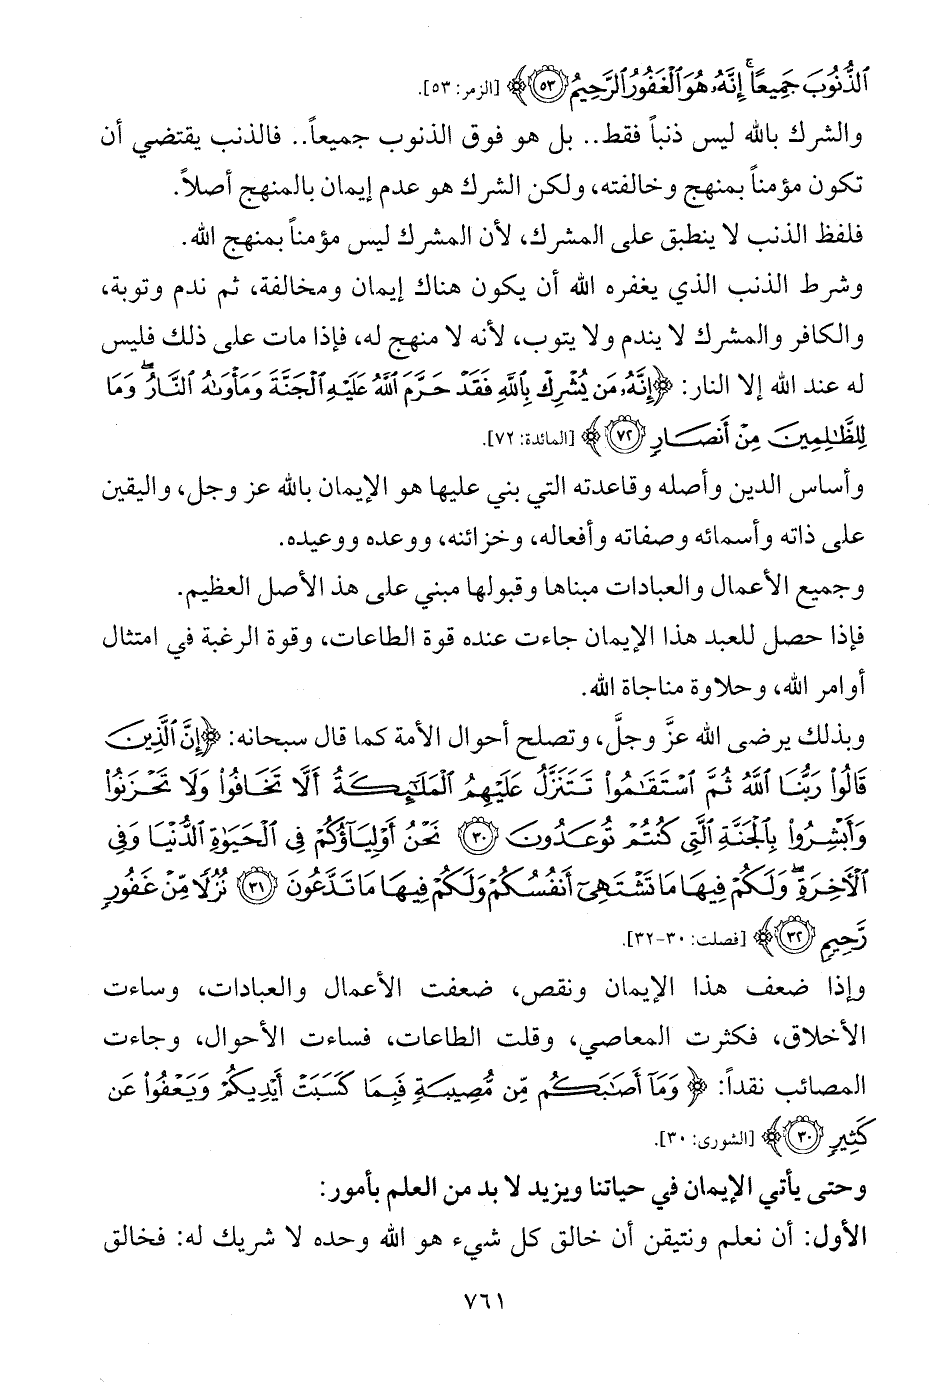 ٱلذُّنُوبَ جَمِيعًا ۚ إِنَّهُۥ هُوَ ٱلْغَفُورُ ٱلرَّحِيمُ ﴿٥٣﴾﴾ [الزمر: ٥٣].
والشرك بالله ليس ذنباً فقط.. بل هو فوق الذنوب جميعاً.. فالذنب يقتضي أن
تكون مؤمناً بمنهج وخالفته، ولكن الشرك هو عدم إيمان بالمنهج أصلاً.
فلفظ الذنب لا ينطبق على المشرك، لأن المشرك ليس مؤمناً بمنهج الله.
وشرط الذنب الذي يغفره الله أن يكون هناك إيمان ومخالفة، ثم ندم وتوبة،
والكافر والمشرك لا يندم ولا يتوب، لأنه لا منهج له، فإذا مات على ذلك فليس
له عند الله إلا النار: ﴿إِنَّهُۥ مَن يُشْرِكْ بِٱللَّهِ فَقَدْ حَرَّمَ ٱللَّهُ عَلَيْهِ ٱلْجَنَّةَ وَمَأْوَىٰهُ ٱلنَّارُ ۖ وَمَا
لِلظَّٰلِمِينَ مِنْ أَنصَارٍ ﴿٧٢﴾﴾ [المائدة: ٧٢].
وأساس الدين وأصله وقاعدته التي بني عليها هو الإيمان بالله عز وجل، واليقين
على ذاته وأسمائه وصفاته وأفعاله، وخزائنه، ووعده ووعيده.
وجميع الأعمال والعبادات مبناها وقبولها مبني على هذ الأصل العظيم.
فإذا حصل للعبد هذا الإيمان جاءت عنده قوة الطاعات، وقوة الرغبة في امتثال
أوامر الله، وحلاوة مناجاة الله.
وبذلك يرضى الله عزَّ وجلَّ، وتصلح أحوال الأمة كما قال سبحانه: ﴿إِنَّ ٱلَّذِينَ
قَالُوا۟ رَبُّنَا ٱللَّهُ ثُمَّ ٱسْتَقَٰمُوا۟ تَتَنَزَّلُ عَلَيْهِمُ ٱلْمَلَٰٓئِكَةُ أَلَّا تَخَافُوا۟ وَلَا تَحْزَنُوا۟
وَأَبْشِرُوا۟ بِٱلْجَنَّةِ ٱلَّتِى كُنتُمْ تُوعَدُونَ ﴿٣٠﴾ نَحْنُ أَوْلِيَآؤُكُمْ فِى ٱلْحَيَوٰةِ ٱلدُّنْيَا وَفِى
ٱلْءَاخِرَةِ ۖ وَلَكُمْ فِيهَا مَا تَشْتَهِىٓ أَنفُسُكُمْ وَلَكُمْ فِيهَا مَا تَدَّعُونَ ﴿٣١﴾ نُزُلًا مِّنْ غَفُورٍ
رَّحِيمٍ ﴿٣٢﴾﴾ [فصلت: ٣٠-٣٢].
وإذا ضعف هذا الإيمان ونقص، ضعفت الأعمال والعبادات، وساءت
الأخلاق، فكثرت المعاصي، وقلت الطاعات، فساءت الأحوال، وجاءت
المصائب نقداً: ﴿وَمَآ أَصَٰبَكُم مِّن مُّصِيبَةٍ فَبِمَا كَسَبَتْ أَيْدِيكُمْ وَيَعْفُوا۟ عَن
كَثِيرٍ ﴿٣٠﴾﴾ [الشورى: ٣٠].
وحتى يأتي الإيمان في حياتنا ويزيد لا بد من العلم بأمور:
الأول: أن نعلم ونتيقن أن خالق كل شيء هو الله وحده لا شريك له: فخالق
٧٦١